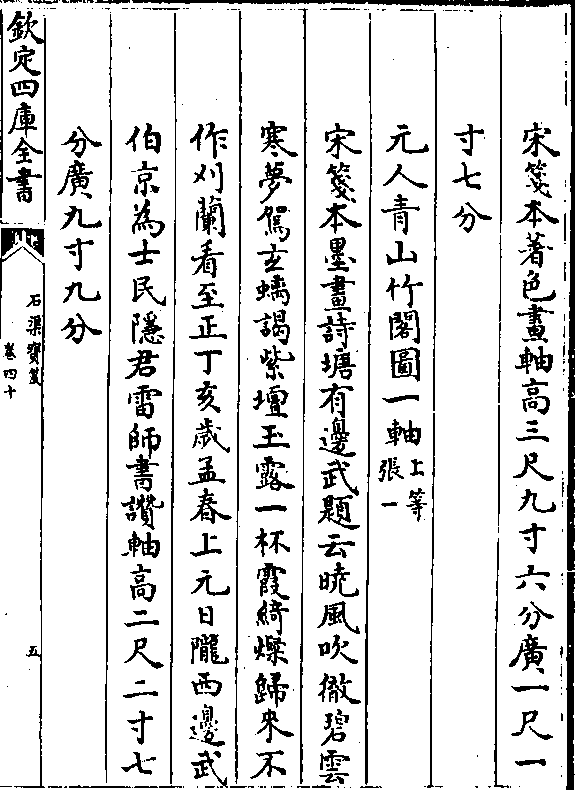 宋箋本著色畫軸高三尺九寸六分廣一尺一
寸七分
元人青山竹閣圖一軸上等張一
宋箋本墨畫詩塘有邊武題云曉風吹徹碧雲
寒夢駕玄螭謁紫壇玉露一杯霞綺燦歸來不
作刈蘭看至正丁亥歲孟春上元日隴西邊武
伯京為士民隱君雷師書讚軸高二尺二寸七
分廣九寸九分
欽定四庫全書
石渠寶笈
卷四十
五